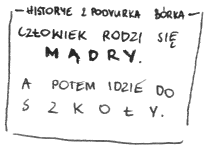 HISTORYE Z PODVURKA BÓRKA
CZŁOWIEK RODZI SIĘ
MĄDRY.
A POTEM IDZIE DO
SZKOŁY.